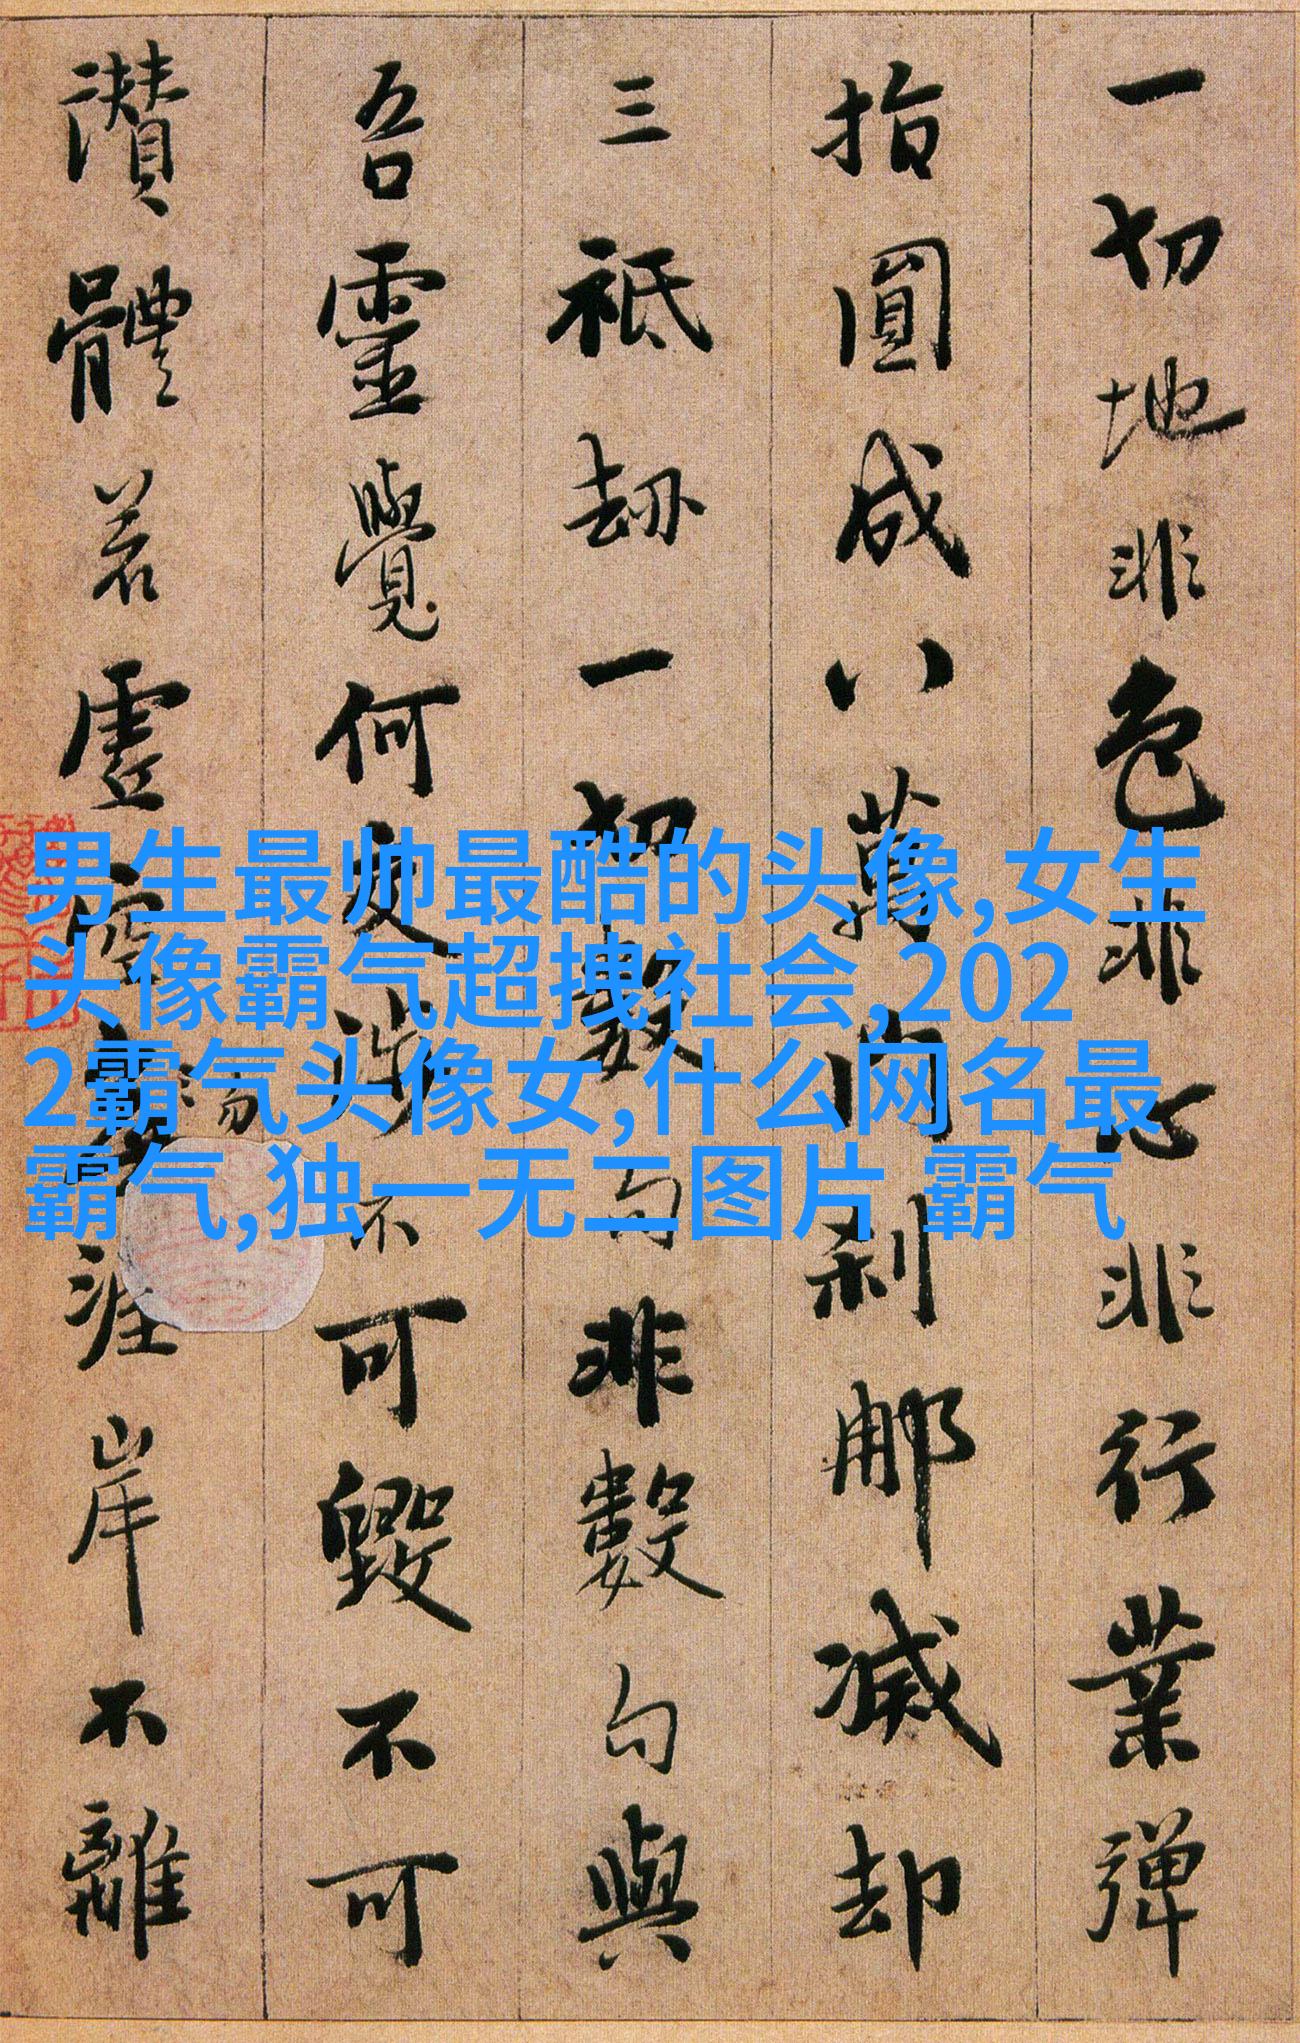 一切地非色非心非行業彈
指圓成八萬門刹那滅却
三祇劫一切數句非數句與
吾靈覺何交涉不可毀不可
讃體若虛空勿涯岸不離
男生最帅最酷的头像,女生
头像霸气超拽社会,202
2霸气头像女,什么网名最
霸气,独一无二图片 霸气